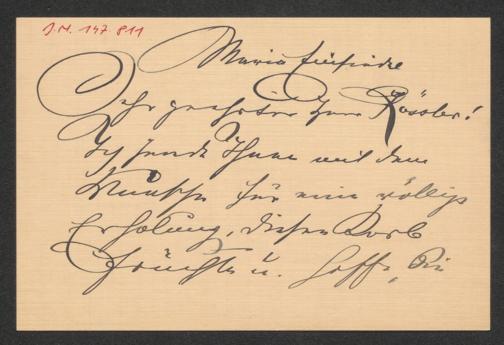 J.N. 147.811
Maria Einsiedel
Sehr geehrter Herr Rössler!
Ich sende Ihnen mit dem
Wunsche für eine völlige
Erholung, diesen Korb
Früchte u. hoffe, Sie